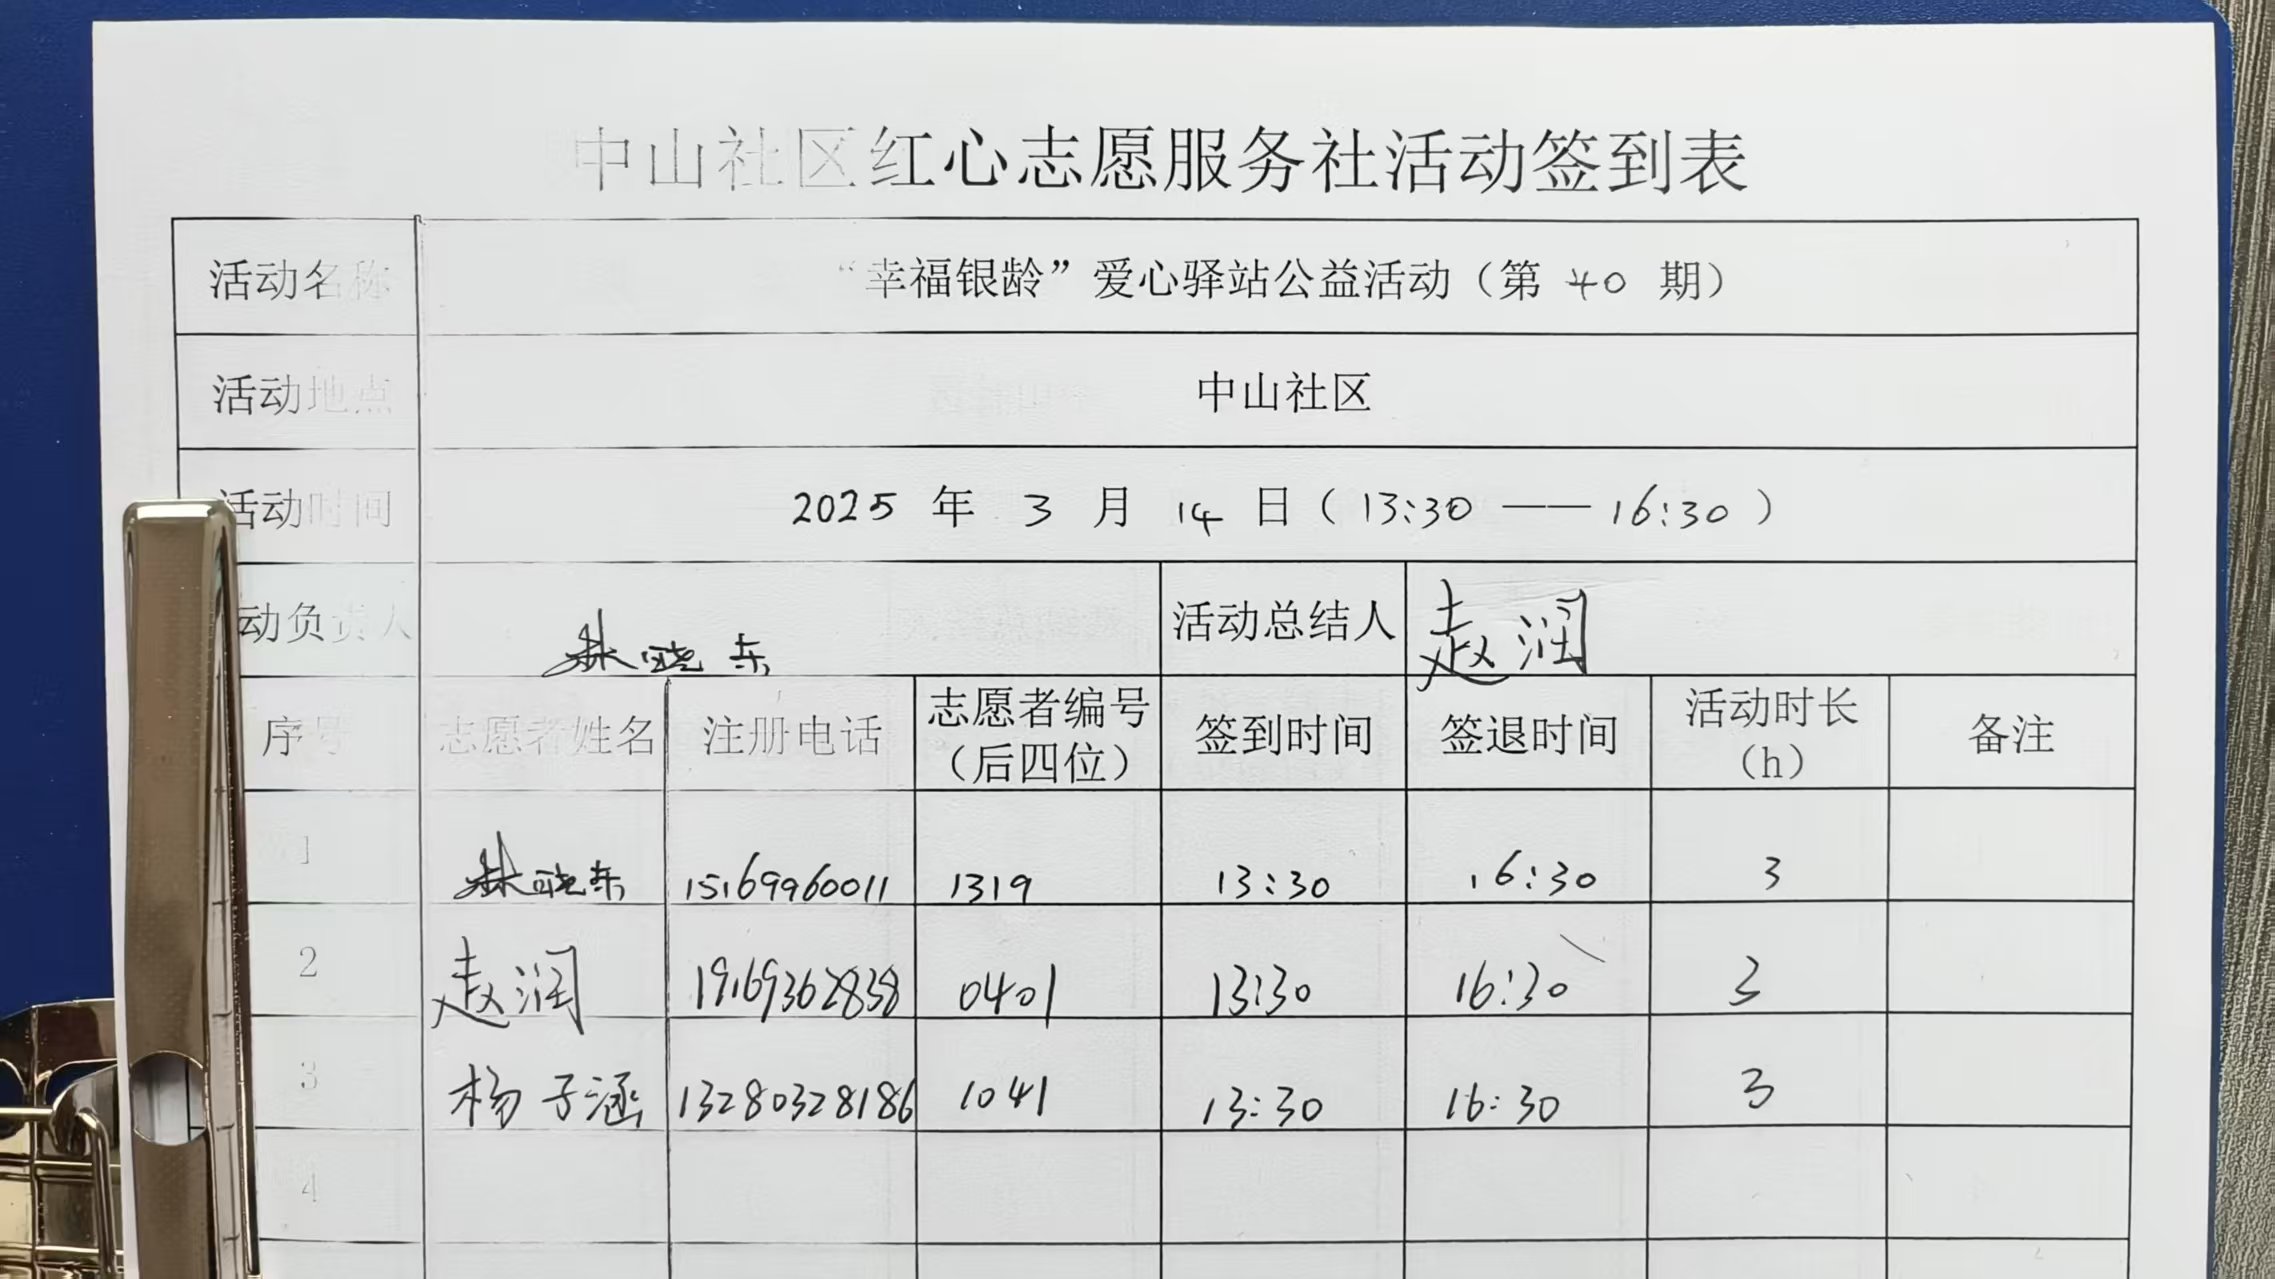 中山社区红心志愿服务社活动签到表
活动名称 “幸福银龄”爱心驿站公益活动（第 40 期）
活动地点 中山社区
活动时间 2025 年 3 月 14 日（13:30 —— 16:30）
动负责人 林晓东 活动总结人 赵润
序号 志愿者姓名 注册电话 志愿者编号（后四位） 签到时间 签退时间 活动时长（h） 备注
1 林晓东 15169960011 1319 13:30 16:30 3
2 赵润 19169362838 0401 13:30 16:30 3
3 杨子涵 13280328186 1041 13:30 16:30 3
4